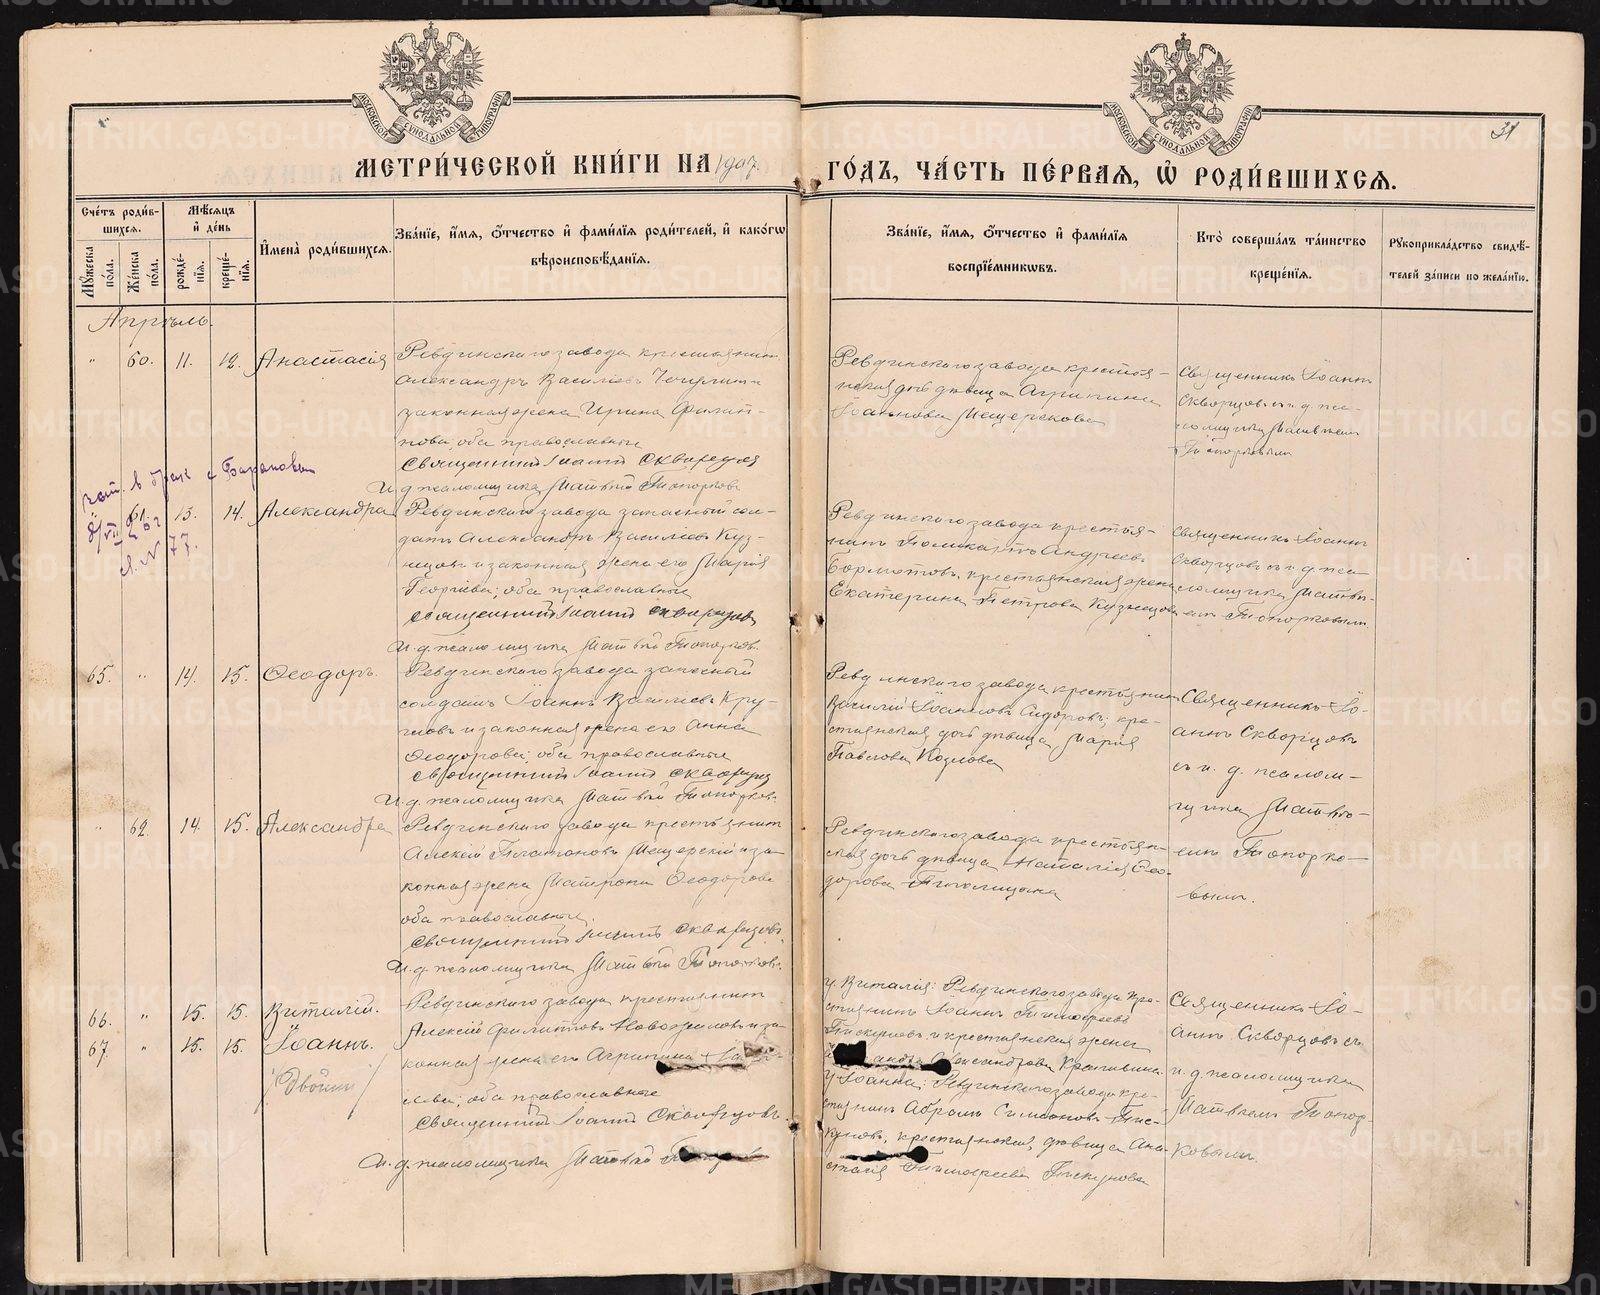 МЕТРИ́ЧЕСКОЙ КНИ́ГИ НА 1907.
ГО́ДЪ, ЧА́СТЬ ПЕ́РВАЯ, Ѽ РОДИ́ВШИХСѦ.
31
Сче́тъ роди́в-
шихся.
Мѣ́сяцъ
и де́нь
Мꙋ́жеска
по́ла.
Же́нска
по́ла.
рожде́-
нїя.
креще́-
нїя.
И҆мена̀ роди́вшихся.
Зва́нїе, и҆́мя, о҆́тчество и҆ фами́лїя роди́телей, и҆ како́гѡ
вѣроисповѣ́данїя.
Зва́нїе, и҆́мя, о҆́тчество и҆ фами́лїя
воспрїе́мниковъ.
Кто̀ соверша́лъ та́инство
креще́нїя.
Рꙋкоприкла́дство свидѣ́-
телей за́писи по жела́нїю.
Апрѣль.
" 60. 11. 12. Анастасія
Ревдинскаго завода крестьянин
Александръ Василіевъ
законная жена Ирина Филип-
пова, оба православные
Священникъ Іоаннъ Скворцовъ
И. д. псаломщика Матвѣй Топорковъ
Ревдинскаго завода крестья-
нская дочь дѣвица Агрипина
Іоаннова Мещерскова
Священникъ Іоаннъ
Скворцовъ съ и. д. пса-
ломщика Матвѣемъ
Топорковымъ
в брак с
№ 77.
61. 13. 14. Александра
Ревдинскаго завода запасный сол-
датъ Александръ Василіевъ Куз-
нецовъ и законная жена его Марія
Георгіева; оба православные
Священникъ Іоаннъ Скворцовъ
И. д. псаломщика Матвѣй Топорковъ.
Ревдинскаго завода крестья-
нинъ Поликарпъ Андреевъ
Бормотовъ, крестьянская жена
Екатерина Петрова Кузнецова
Священникъ Іоаннъ
Скворцовъ съ и. д. пса-
ломщика Матвѣ-
емъ Топорковымъ.
65. " 14. 15. Ѳеодоръ.
Ревдинскаго завода запасный
солдатъ Іоаннъ Василіевъ Кру-
гловъ и законная жена его Анна
Ѳеодорова; оба православные
Священникъ Іоаннъ Скворцовъ
И. д. псаломщика Матвѣй Топорковъ.
Ревдинскаго завода крестьянин
Василій Іоанновъ Сидоровъ, кре-
стьянская дочь дѣвица Марія
Павлова Козлова
Священникъ Іо-
аннъ Скворцовъ
съ и. д. псалом-
щика Матвѣ-
емъ Топорко-
вымъ.
" 62. 14. 15. Александра
Ревдинскаго завода крестьянинъ
Алексій Платоновъ Мещерскій и за-
конная жена Матрона Ѳеодорова
оба православные.
Священникъ Іоаннъ Скворцовъ
И. д. псаломщика Матвѣй Топорковъ.
Ревдинскаго завода крестьян-
ская дочь дѣвица Наталія Ѳео-
дорова
66. " 15. 15. Виталій.
67. " 15. 15. Іоаннъ.
/Двойни/
Ревдинскаго завода крестьянинъ
Алексій Филиповъ Новожиловъ и за-
конная жена его Агрипина
оба православные
Священникъ Іоаннъ Скворцовъ.
И. д. псаломщика Матвѣй
у Виталія: Ревдинскаго завода кре-
стьянинъ Іоаннъ Тимофеевъ
Пискуновъ и крестьянская жена
Александрова
у Іоанна: Ревдинскаго завода кре-
стьянинъ Абрамъ Симеоновъ Пис-
куновъ, крестьянская дѣвица Ана-
стасія Тимофеева Пискунова
Священникъ Іо-
аннъ Скворцовъ съ
и. д. псаломщика
Матвѣемъ Топор-
ковымъ.